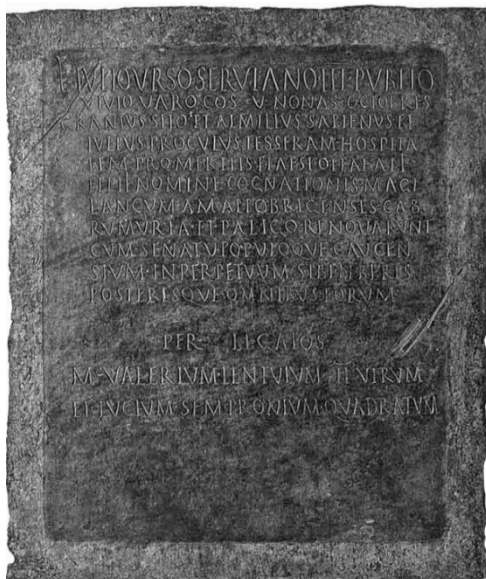 L IVLIO VRSO SERVIANO III PVBLIO
VIVIO VARO COS V NONAS OCTOBRES
GRANIVS SILO ET AEMILIVS SAPIENVS ET
IVLIVS PROCVLVS TESSERAM HOSPITA
LEM PRO MERITIS ELAESI OTTAE AII
FILII NOMINE COGNATIONIS MAGI
LANCVM AMALLOBRIGENSES CAB
RVMVRIA ET PALIGO RENOVARVNT
CVM SENATV POPVLOQVE CAVCEN
SIVM IN PERPETVVM SIBI LIBERIS
POSTERISQVE OMNIBVS EORVM
PER LEGATOS
M VALERIVM LENTVLVM II VIRVM
ET LVCIVM SEMPRONIVM QVADRATVM